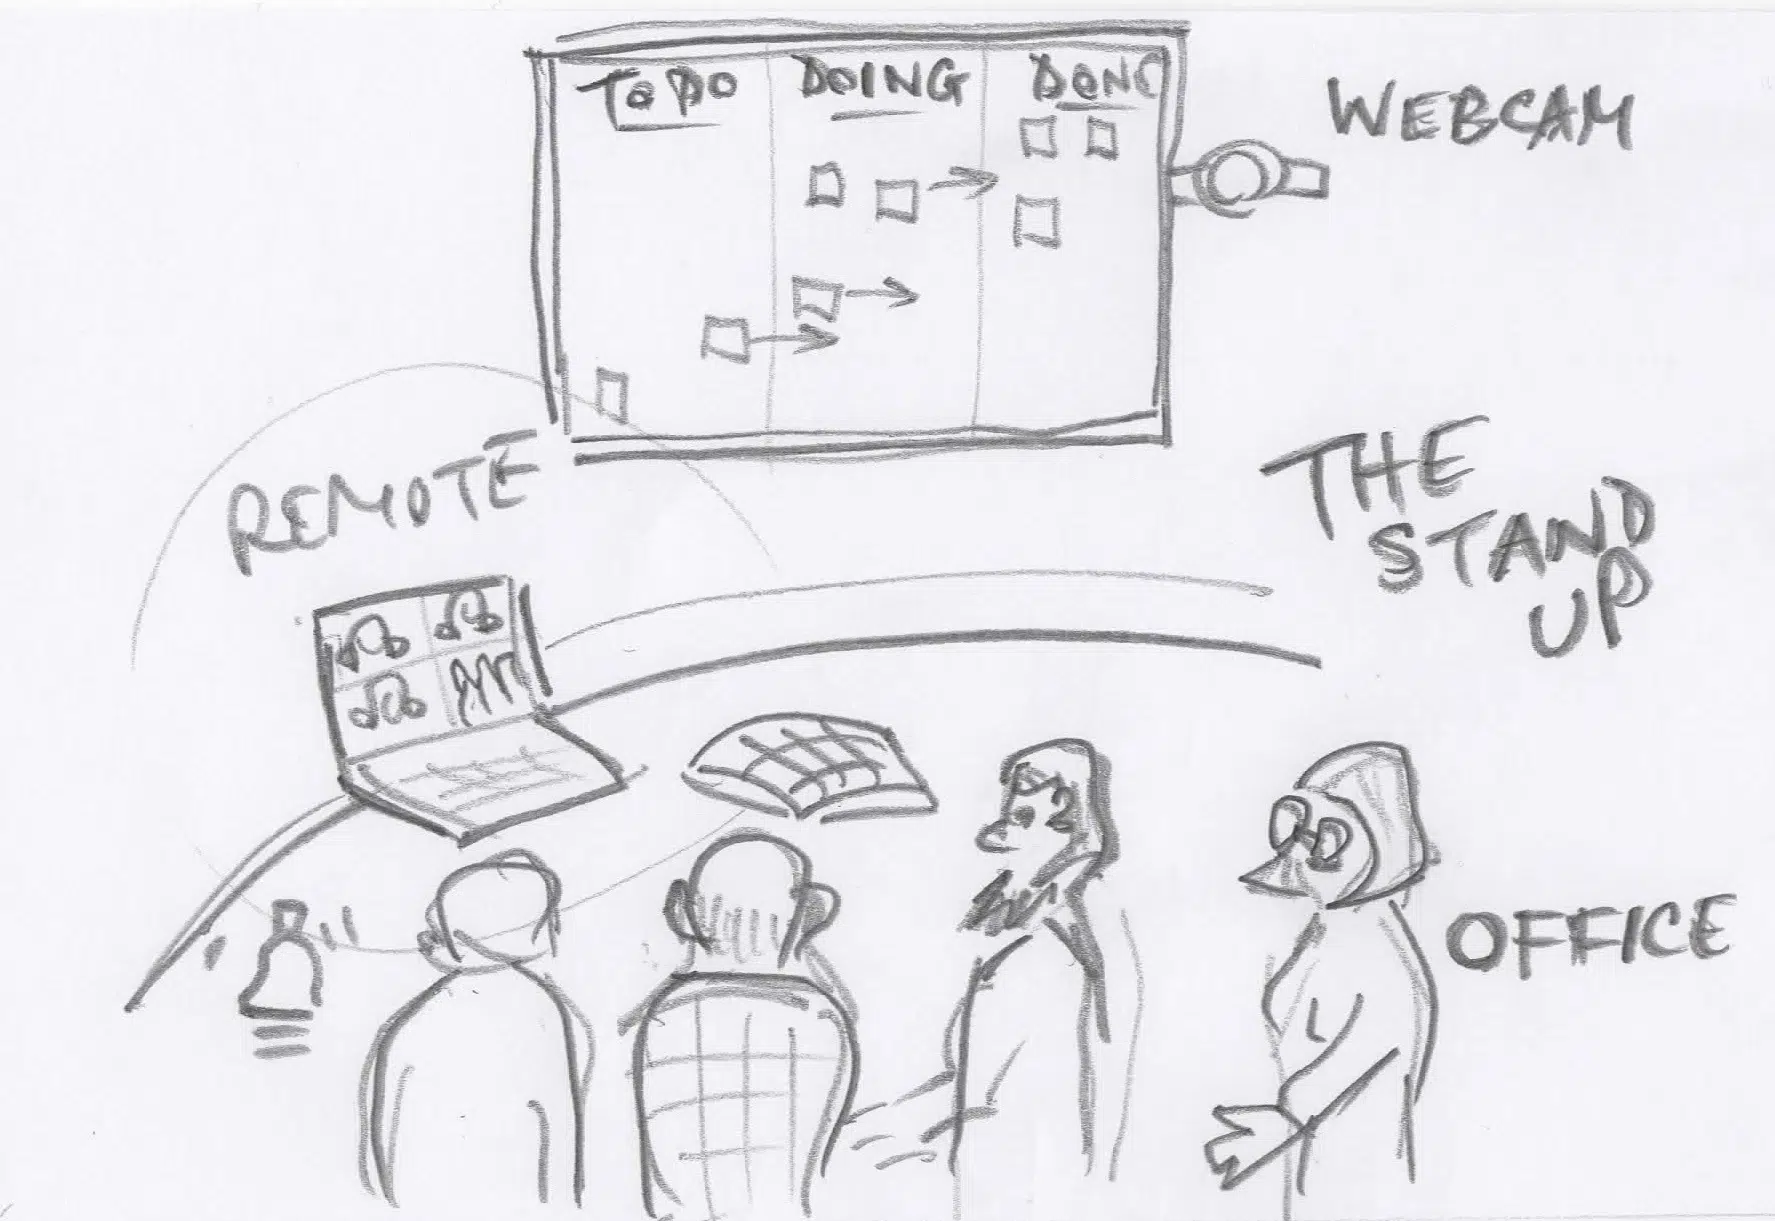 TO DO
DOING
DONE
WEBCAM
REMOTE
THE
STAND
UP
OFFICE